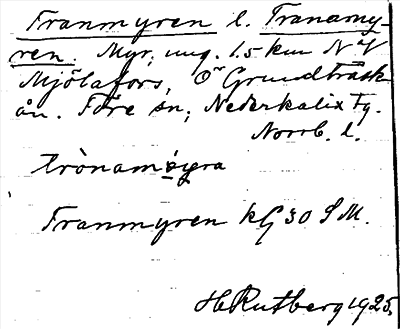 Tranmyren l. Tranamy-
ren. Myr, ung. 1.5 km NV
Mjölafors, O Grundträsk-
ån. Töre sn, Nederkalix Tg.
Norrb. l.
trònamỳra
Tranmyren kG 30 SM.
H Rutberg 1925.